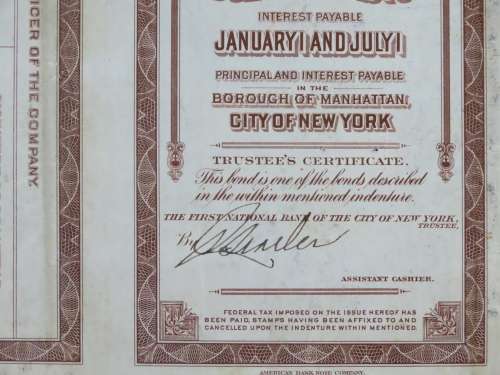 OFFICER OF THE COMPANY.
INTEREST PAYABLE
JANUARY 1 AND JULY 1
PRINCIPAL AND INTEREST PAYABLE
IN THE
BOROUGH OF MANHATTAN,
CITY OF NEW YORK
TRUSTEE'S CERTIFICATE.
This bond is one of the bonds described
in the within mentioned indenture.
THE FIRST NATIONAL BANK OF THE CITY OF NEW YORK,
TRUSTEE,
By
ASSISTANT CASHIER.
FEDERAL TAX IMPOSED ON THE ISSUE HEREOF HAS
BEEN PAID, STAMPS HAVING BEEN AFFIXED TO AND
CANCELLED UPON THE INDENTURE WITHIN MENTIONED.
AMERICAN BANK NOTE COMPANY.